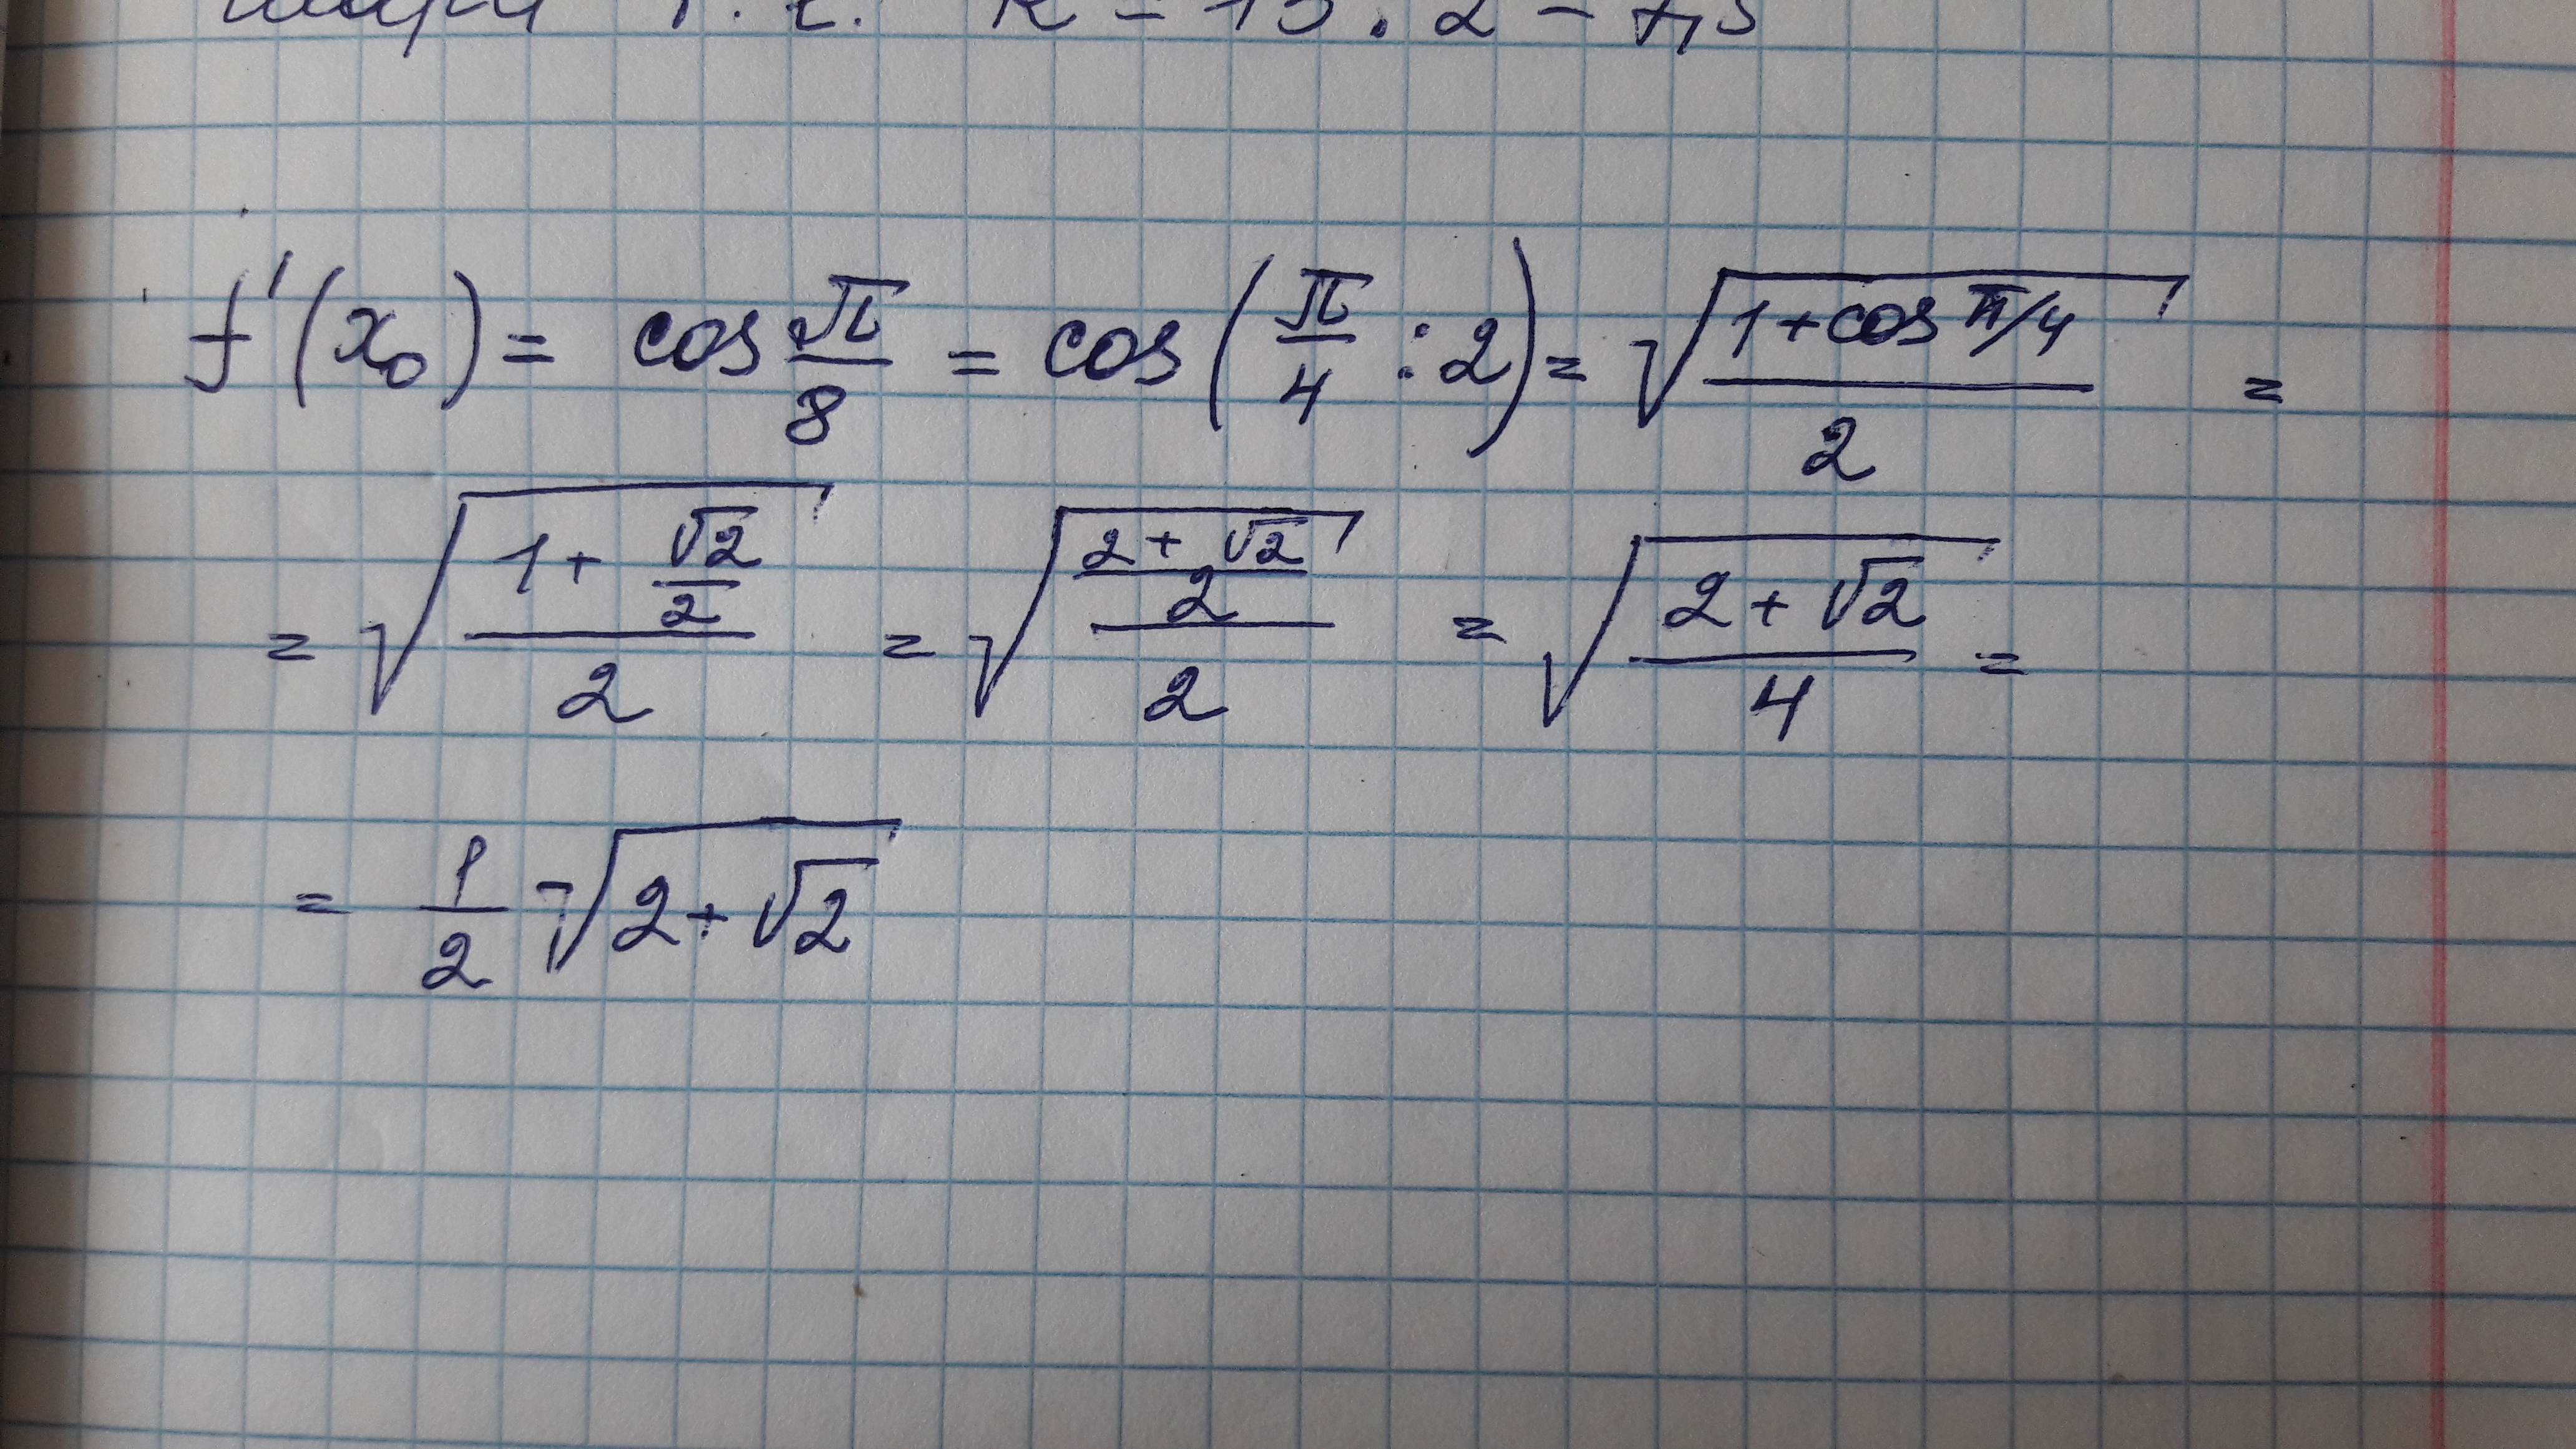 шара т.е. R = 15 : 2 = 7,5
f'(x₀) = cos π/8 = cos(π/4 : 2) = √((1+cos π/4)/2) =
= √((1 + √2/2)/2) = √(((2 + √2)/2)/2) = √((2 + √2)/4) =
= 1/2 √(2 + √2)